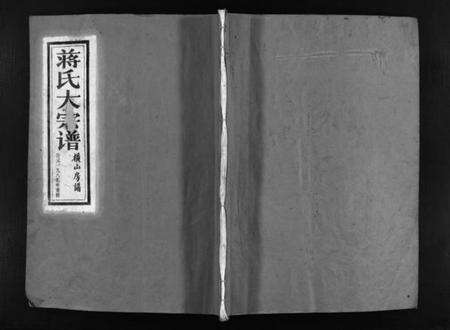 蒋氏大宗谱
横山房譜